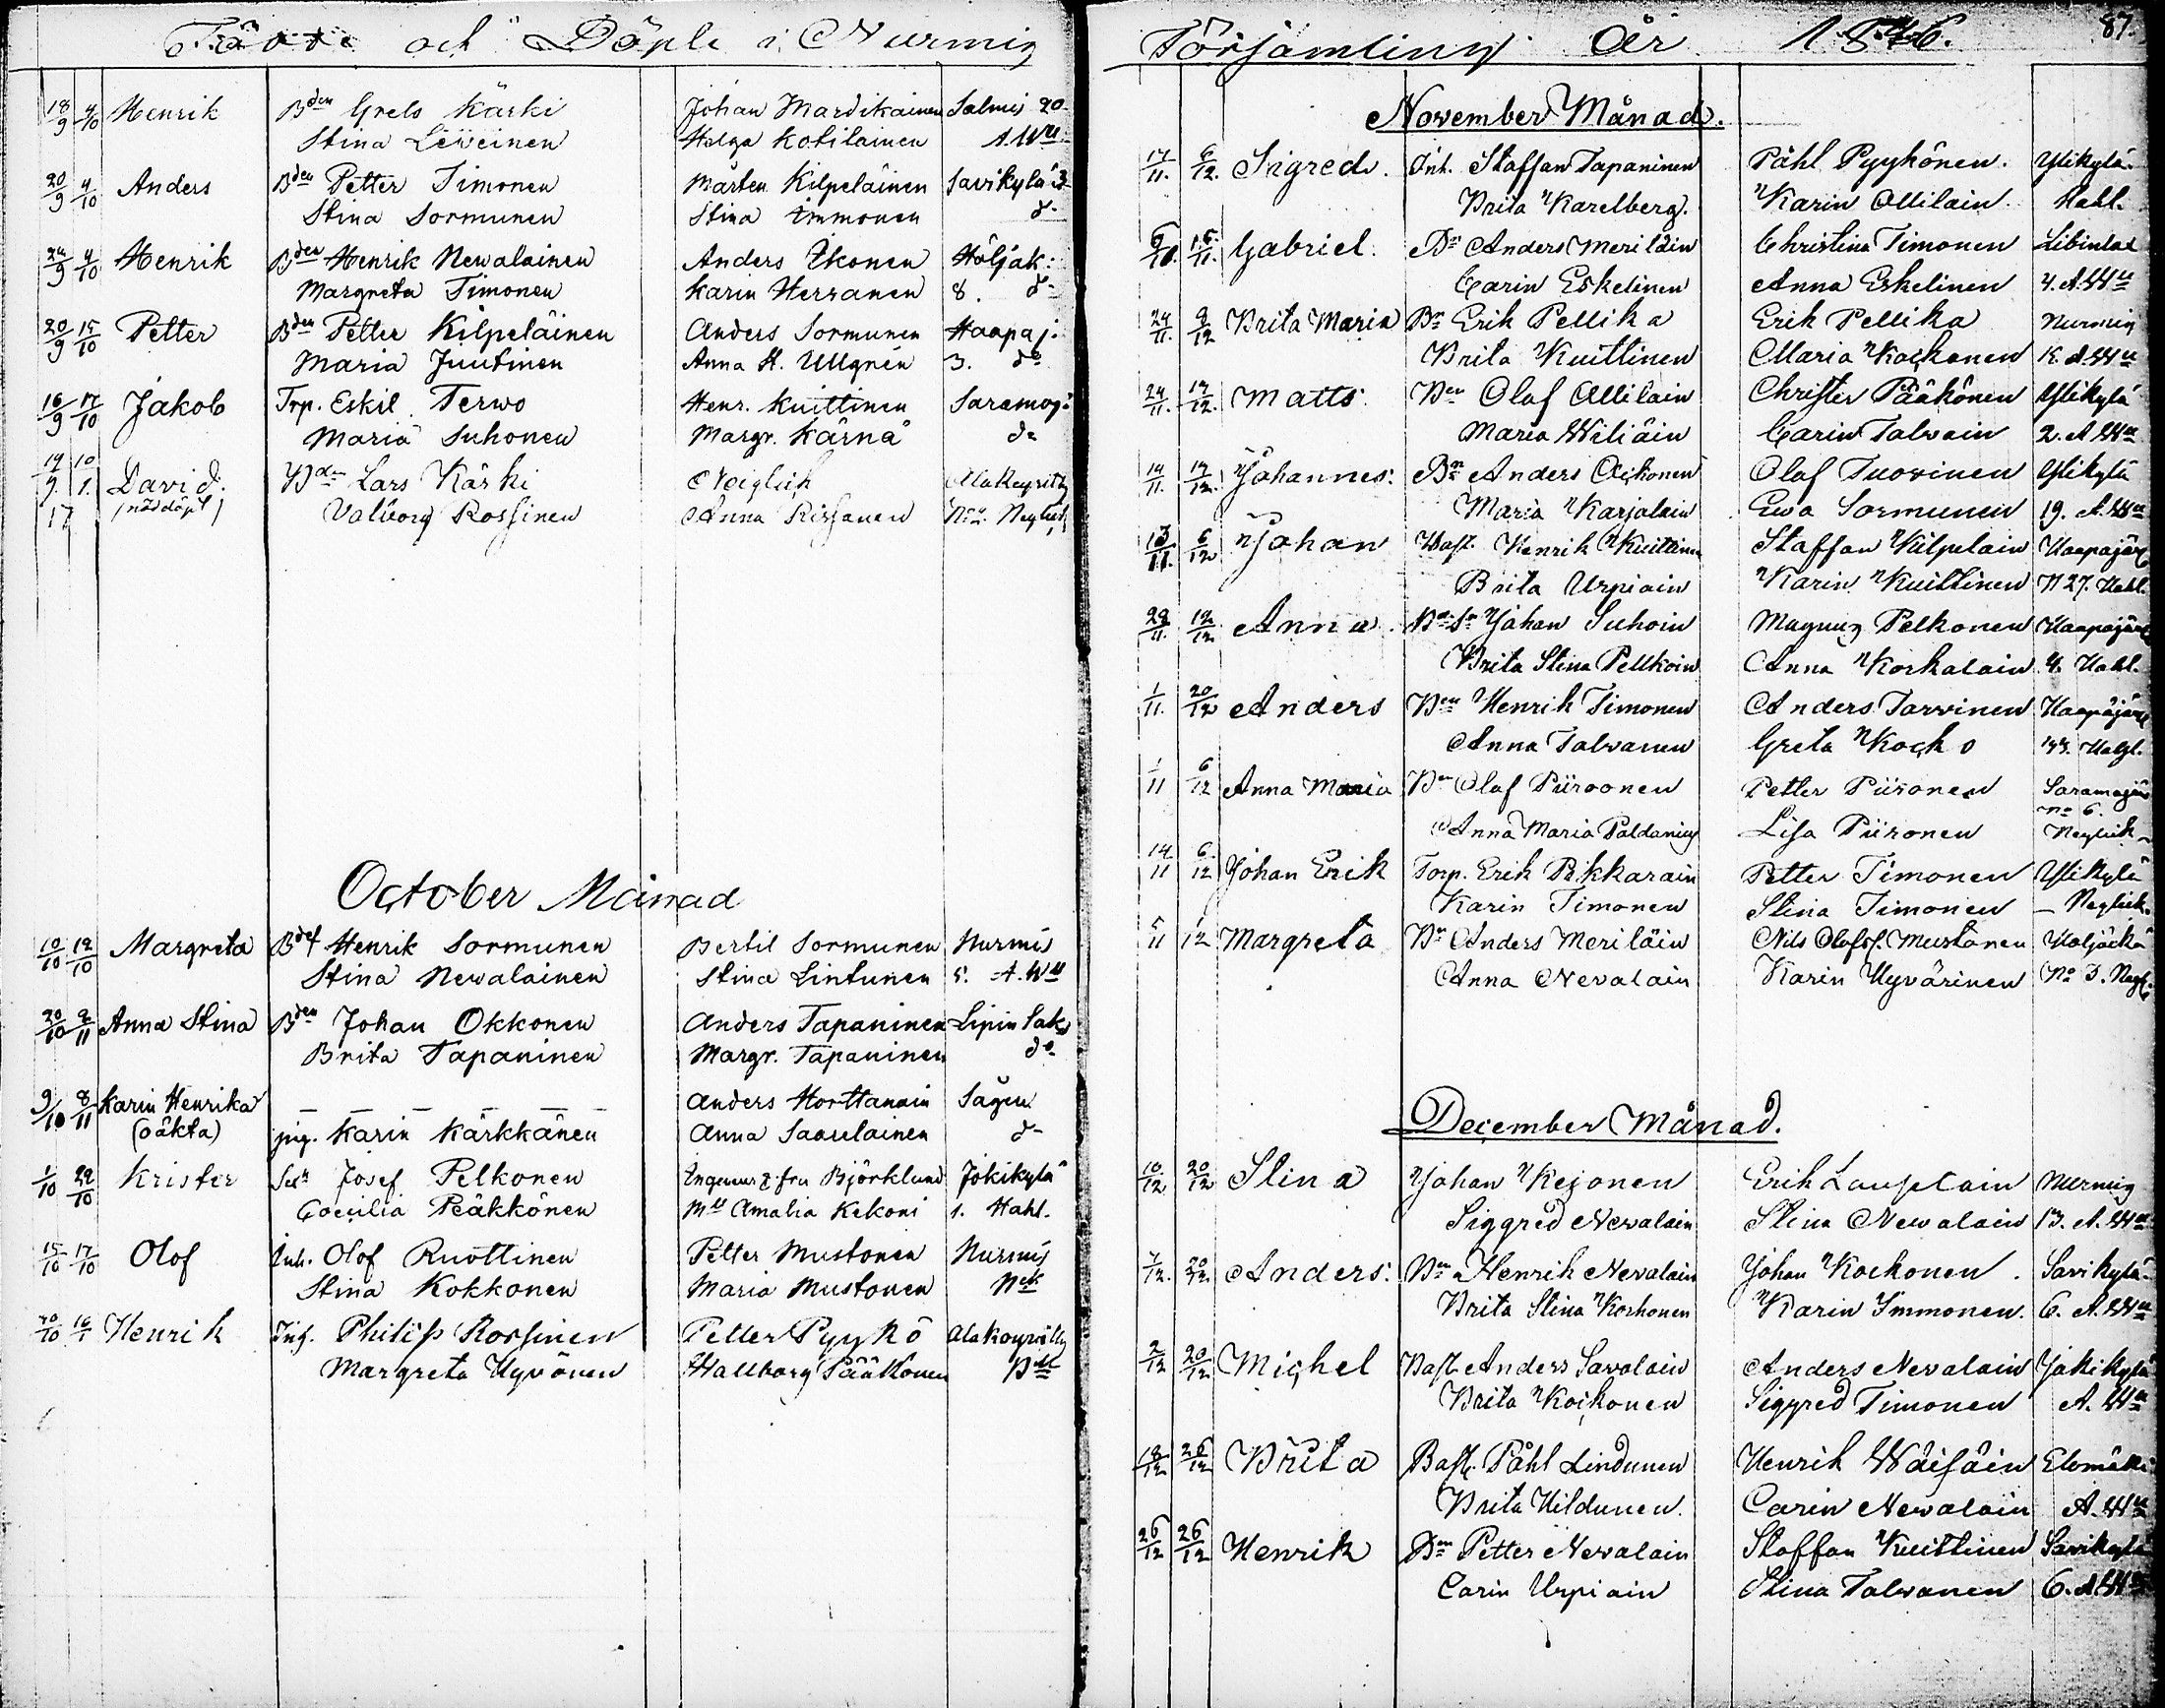 Födde och Döpte i Nurmis
18/9 4/10 Henrik Bden Grels Kärki Johan Mardikainen Salmis 20
Stina Leweinen Helga Kotilainen A.Wll
20/9 4/10 Anders Bden Petter Timonen Mårten Kilpeläinen Savikylä 3
Stina Sormunen Stina Immonen do
24/9 4/10 Henrik Bden Henrik Newalainen Anders Ikonen Höljäk:
Margreta Timonen Karin Herranen 8. do
20/9 15/10 Petter Bden Petter Kilpeläinen Anders Sormunen Haapaj.
Maria Juutinen Anna H. Ullgrén 3. do
16/9 17/10 Jakob Trp. Eskil Terwo Henr. Kuittinen Saramoj:
Maria Suhonen Margr. Kärnä do
19/9. 10/1. David. Bden Lars Kärki Neiglick Alakeyritty
(nöddöpt) Valborg Rossinen Anna Rissanen Neglick
17
October Månad
10/10 12/10 Margreta Bdet Henrik Sormunen Bertil Sormunen Nurmis
Stina Newalainen Stina Lintunen 5. A.Wll
20/10 2/11 Anna Stina Bden Johan Okkonen Anders Tapaninen Lipin laks
Brita Tapaninen Margr. Tapaninen do
9/10 8/11 Karin Henrika — — — — — Anders Horttanain Sågen
(oäkta) pig. Karin Kärkkänen Anna Saarelainen do
1/10 22/10 Krister Josef Pelkonen Ingenieur & fru Björklund Jokikylä
Coecilia Pääkkönen Mll Amalia Kekoni 1. Hahl.
15/10 17/10 Olof Inh. Olof Ruottinen Petter Mustonen Nurmis
Stina Kokkonen Maria Mustonen Nek
20/10 16/1 Henrik Inh. Philip Rossinen Petter Pyykö Alakoyritty
Margreta Hyvönen Wallborg Pääkönen
Församling År 1846. 87.
November Månad.
17/11. 6/12. Sigred. Inh. Staffan Tapaninen Påhl Pyykönen. Ylikylä
Brita Karelberg. Karin Ollilain Hahl.
6/11. 15/11. Gabriel. Bn Anders Meriläin Christina Timonen Libinlax
Carin Eskelinen Anna Eskelinen 4. A.Wll
24/11. 9/12 Brita Maria Bn Erik Pellika Erik Pellika Nurmis
Brita Kuittinen Maria Kockonen A.Wll
24/11. 12/12. Matts. Bn Olof Ollilain Christer Pääkönen Ylikylä
Maria Wiliäin Carin Talvain 2. A.Wll
14/11. 12/12. Johannes: Bn Anders Ockonen Olof Tuovinen Ylikylä
Maria Karjalain Ewa Sormunen 19. A.Wll
13/11. 6/12 Johan Wäst. Henrik Kuittinen Staffan Kilpelain Haapajärj
Brita Urpiain Karin Kuittinen N 27. Hahl.
28/11. 12/12 Anna. Bn Sn Johan Suhoin Magnus Pelkonen Haapajärj
Brita Stina Pellkoin Anna Korhalain 4. Hahl.
1/11. 20/12 Anders Bn Henrik Timonen Anders Tarvinen Haapajärj
Anna Talvanen Greta Kocko Hahl.
1/11 6/12 Anna Maria Bn Olof Piiroonen Petter Piironen Saramojärj
No 6.
Anna Maria Paldanius Lisa Piironen Neglick
14/11 6/12 Johan Erik Torp. Erik Pikkarain Petter Timonen Ylikylä
Karin Timonen Stina Timonen — Neglick.
5/11 1/12 Margreta Bn Anders Meriläin Nils Olofss. Mustonen Höljäckä
Anna Nevalain Karin Hyvärinen No 3. Negl.
December Månad.
10/12 20/12 Stina Johan Kejonen Erik Lauplain Nurmis
Siggred Nevalain Stina Newalain 13. A.Wll
7/12. 20/12. Anders: Bn Henrik Nevalain Johan Kockonen. Savikylä
Brita Stina Korhonen Karin Immonen. 6. A.Wll
2/12 20/12 Michel Bast. Anders Savolain Anders Nevalain Jokikylä
Brita Kockonen Siggred Timonen A. Wll
18/12 26/12 Brita Bast. Påhl Lindunen Henrik Wäisäin Elomäki
Brita Hildunen. Carin Nevalain A. Wll
26/12 26/12 Henrik Bn Petter Nevalain Staffan Kuittinen Savikylä
Carin Urpiain Stina Talvanen 6. A.Wll